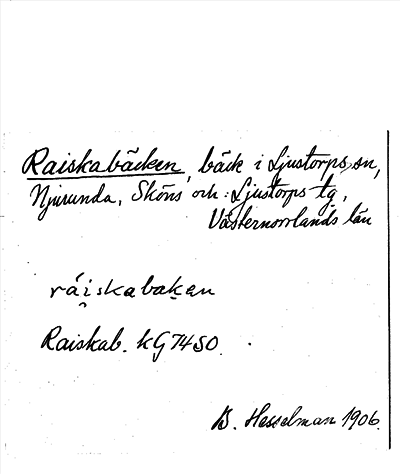 Raiskabäcken, bäck i Ljustorps sn,
Njurunda, Sköns och Ljustorps tg,
Västernorrlands län
ráiskabaken
Raiskab. kG74SO.
B. Hesselman 1906.